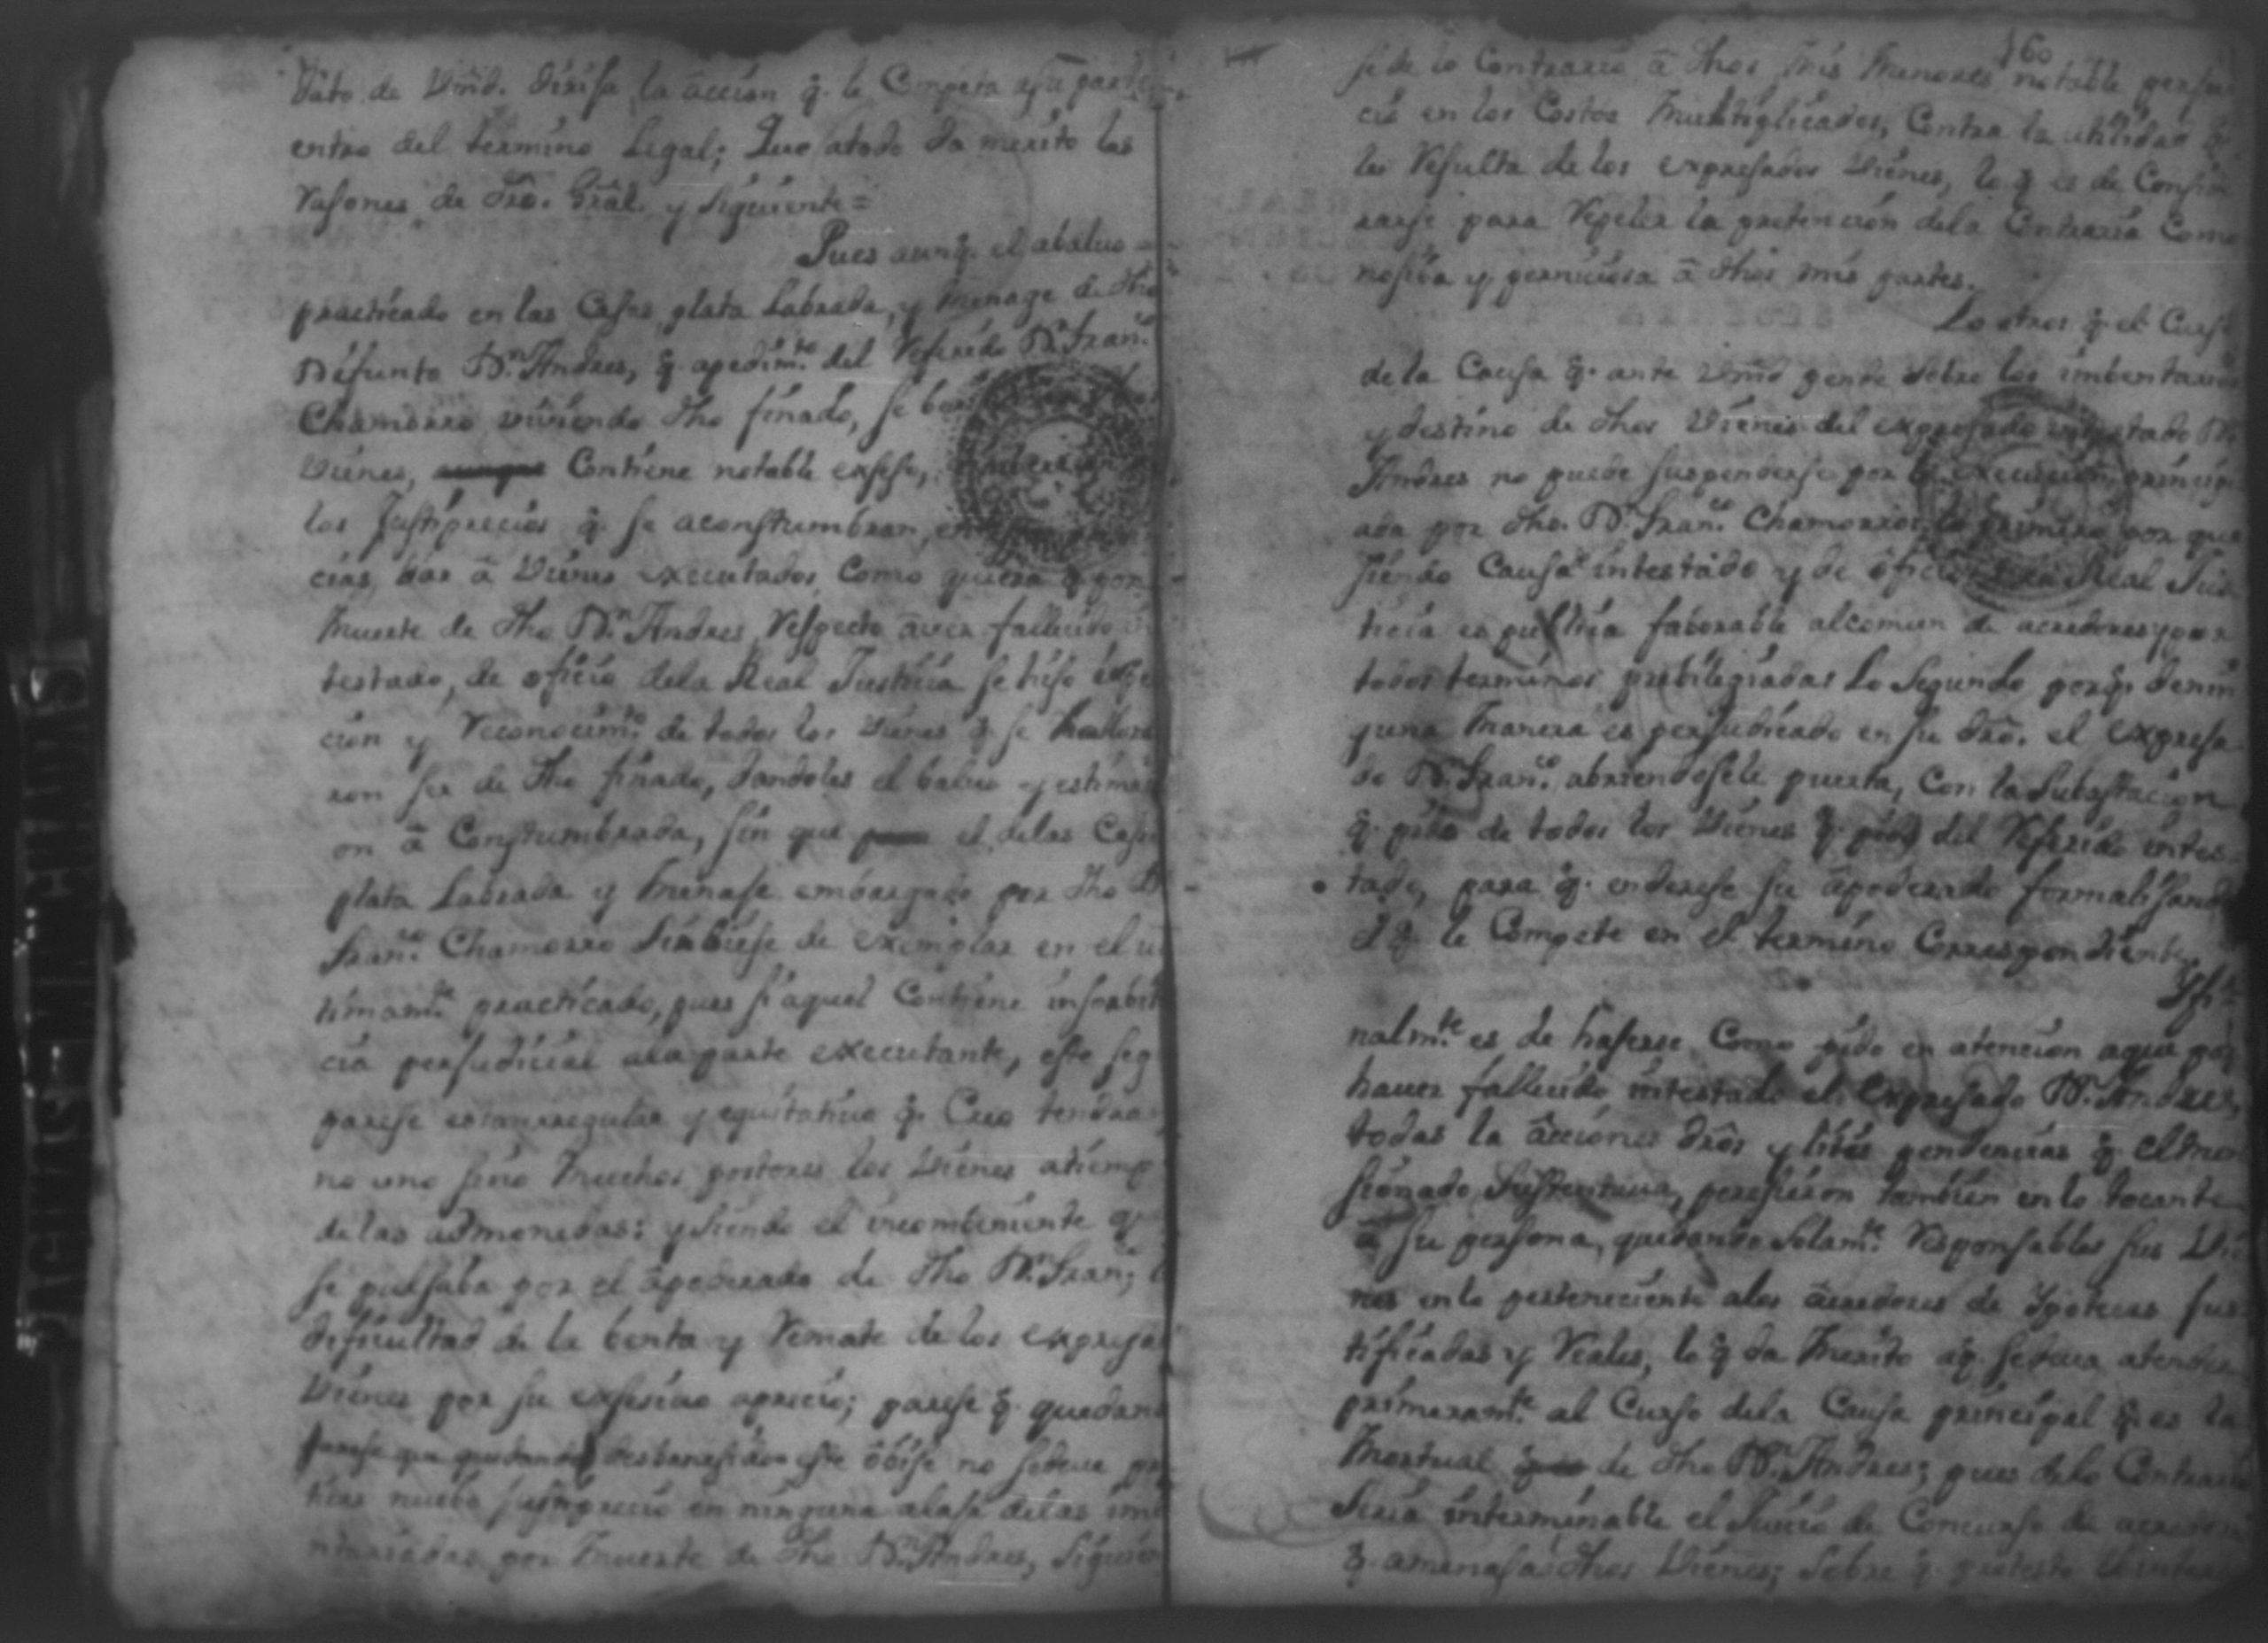 dato de Vmd. dirija la acción q. le Competa a su parte
entro del termino Legal; Que atodo da merito las
rasones de dro. Gral. y siguiente=
Pues aunq. el abaluo
practicado en las Casas, plata Labrada, y menage de dho
Difunto Dn. Andres, q. apedimto. del referido Dn. Franco.
Chamorro viviendo dho finado, se
Vienes, Contiene notable exseso,
los Justiprecios q. se aconstumbran,
cias, dar â Vienes executados, Como quiera q. por
muerte de dho Dn. Andres, respecto aver fallecido in
testado, de oficio dela Real Justicia se hiso
cion y reconocimto. de todos los Vienes q. se hallaron
ron ser de dho finado, dandoles el baluo y estima
on â Constumbrada, sin que el delas Casas
plata Labrada y menaje embargado por dho D
Franco. Chamorro Sirbiese de exemplar en el ul
timamte. practicado, pues si aquel Contiene
cia perjudicial ala parte executante, este seg
parese estan regular y equitativo q. Creo tendran
no uno sino muchos postores los Vienes atiemp
de las admonedas: y siendo el incombeniente q
se pulsaba por el apoderado de dho Dn. Franco;
dificultad de la benta y remate de los expresa
Vienes por su exsesivo aprecio; parese q. quedan
parese que quedando desbanesido este óbise no sedeve
nuebo justiprecio en ninguna alaja delas inb
ntariadas por muerte de dho Dn. Andres, siguien
160
se de lo Contrario â dhos mis menores notable perjui
cio en los Costos multiplicados, Contra la utilidad q.
les resulta de los expresados Vienes, lo q. es de Consi
rarse para repeler la pretencion dela Contraria Como
nosiba y perniciosa â dhos mis partes.
Lo otros q. el Curso
de la Causa q. ante Vmd pende sobre los imbentarios
y destino de dhos Vienes del expresado intestado Dn.
Andres no puede suspenderse por la execucion princip
ada por dho. Dn. Franco. Chamorro: lo primero por que
siendo Causa intestado y de oficio Real Jus
ticia es publica faborable alcomun de acredores y por
todos terminos pribilegiadas Lo Segundo porq. denin
guna manera es perjudicado en su dro. el expresa
do Dn. Franco. abriendosele puerta, Con la Subastacion
q. pido de todos los Vienes q. del referido intes
tado, para q. enderese su apoderado formalisando
el q. le Compete en el termino Correspondiente.
Y fi
nalmte. es de haserse Como pido en atencion aque por
haver fallecido intestado el expresado Dn. Andres,
todas la acciones dros y litis pendencias q. el men
sionado Sustentava, peresieron tambien en lo tocante
â su persona, quedando solamte. responsables sus Vie
nes en lo perteneciente alos acredores de Ypotecas jus
tificadas y reales, lo q. da merito aq. sedeva atender
primeramte. al Curso dela Causa principal q. es la
Mortual de dho Dn. Andres; pues delo Contrario
Seria interminable el Juicio de Concurso de acredores
q. amenasa dhos Vienes; sobre q. protesto